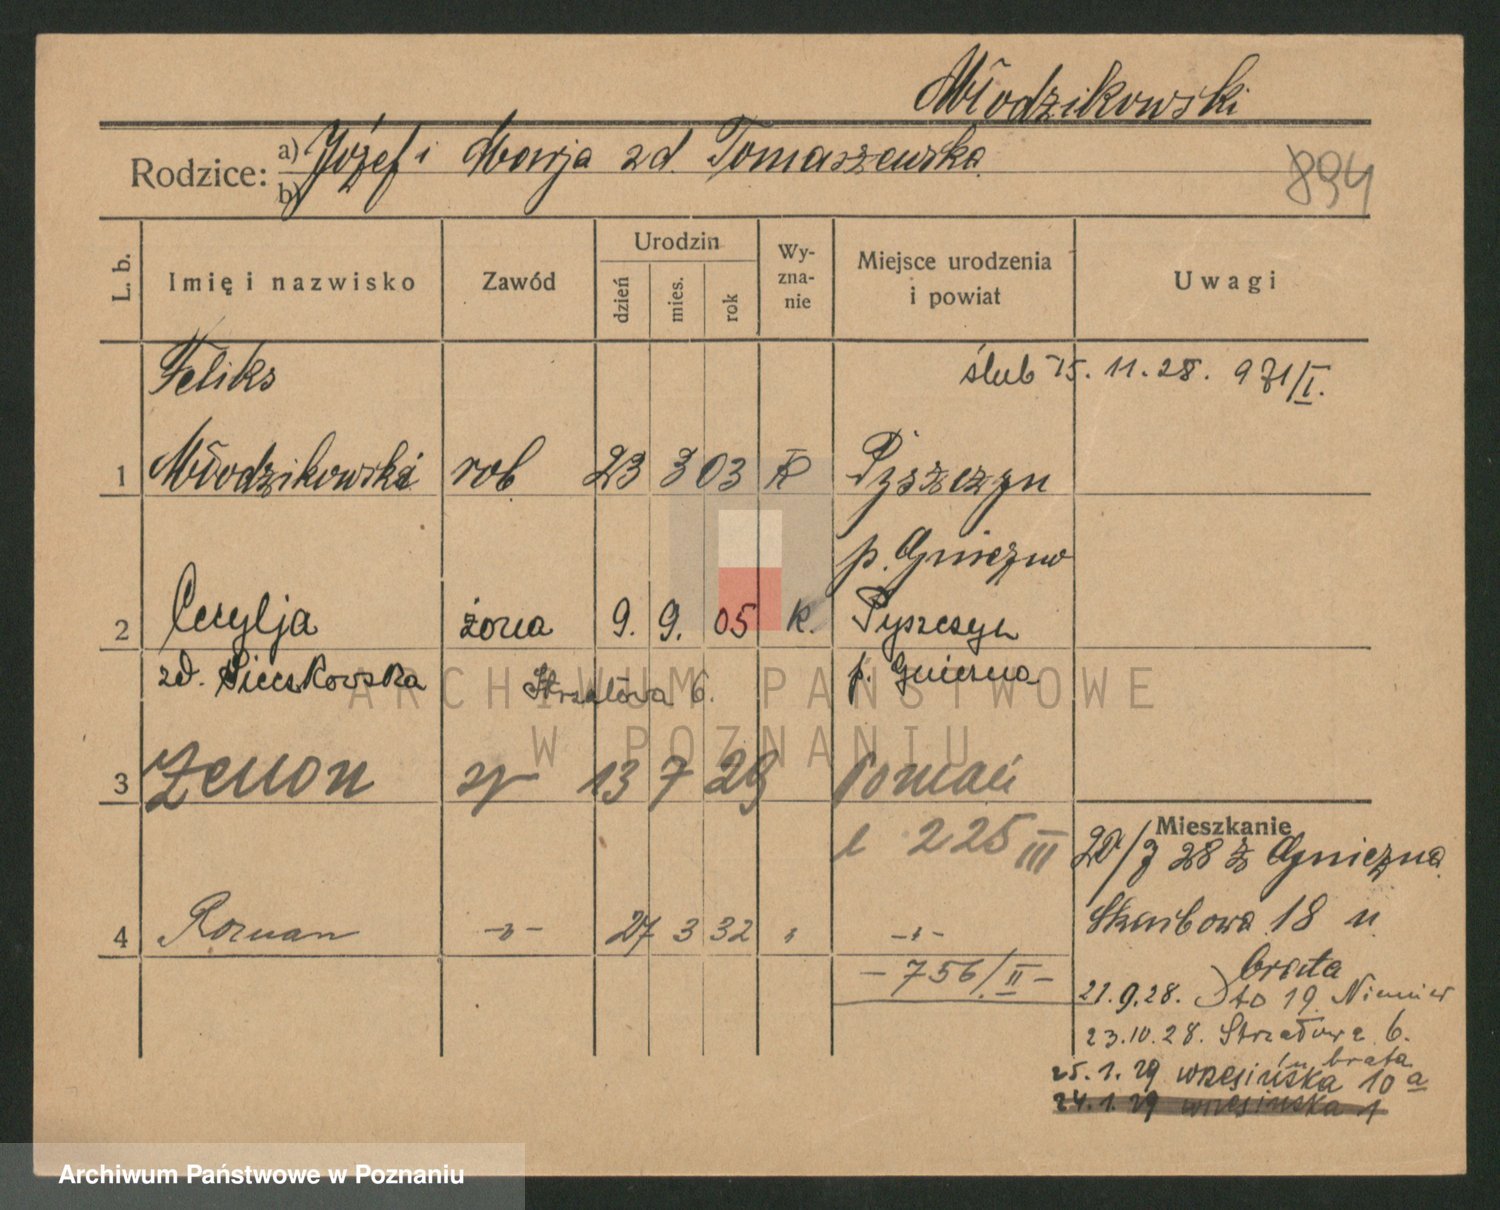 Młodzikowski
Rodzice: a) Józef i Marja zd. Tomaszewska
b)
894
L. b.
Imię i nazwisko
Zawód
Urodzin
dzień
mies.
rok
Wy-
zna-
nie
Miejsce urodzenia
i powiat
Uwagi
Feliks
ślub 15. 11. 28. 971/I.
1 Młodzikowski rob 23 3 03 K Pyszczyn
p. Gniezno
2 Cecylja żona 9. 9. 05 k. Pyszczyn
zd. Pieczkowska Strzałowa 6. p. Gniezno
3 Zenon 13 7 29 Poznań
225 III
4 Roman -„- 27 3 32 „ -„-
- 756/II -
Mieszkanie
20/7 28 z Gniezna
Skarbowa 18 u
brata
21.9.28. to 19
23.10.28. Strzałowa 6.
u brata
25.1.29 wrzesińska 10a
24.1.29 wrzesińska 1
ARCHIWUM PAŃSTWOWE
W POZNANIU
Archiwum Państwowe w Poznaniu